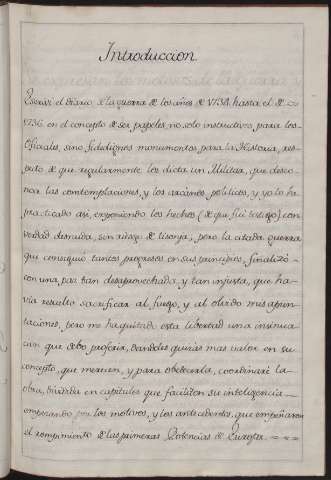 Introduccion.
Escriví el diario de la guerra de los años de 1733. hasta el de
1736. en el concepto de ser papeles, no solo instructivos, para los
Oficiales, sino fidedignos monumentos para la Historia, res-
pecto de que regularmente los dicta un Militar, que desco-
noce las contemplaciones, y los arcanos politicos, y yo lo he
practicado asi, exponiendo los hechos (de que fui testigo) con
verdad desnuda, sin riesgo de lisonja, pero la citada guerra
que consiguió tantos progresos en sus principios, finalizó
con una paz tan desaprovechada, y tan injusta, que ha-
via resuelto sacrificar al fuego, y al olvido mis apun-
taciones, pero me ha quitado esta libertad una insinua-
cion que debo preferir, dandoles quizás mas valor en su
concepto, que merecen, y para obedecerla, coordinaré la
obra, dividida en capitulos que faciliten su inteligencia
empezando por los motivos, y los antecedentes, que empeñaron
el rompimiento de las primeras Potencias de Europa. = = =